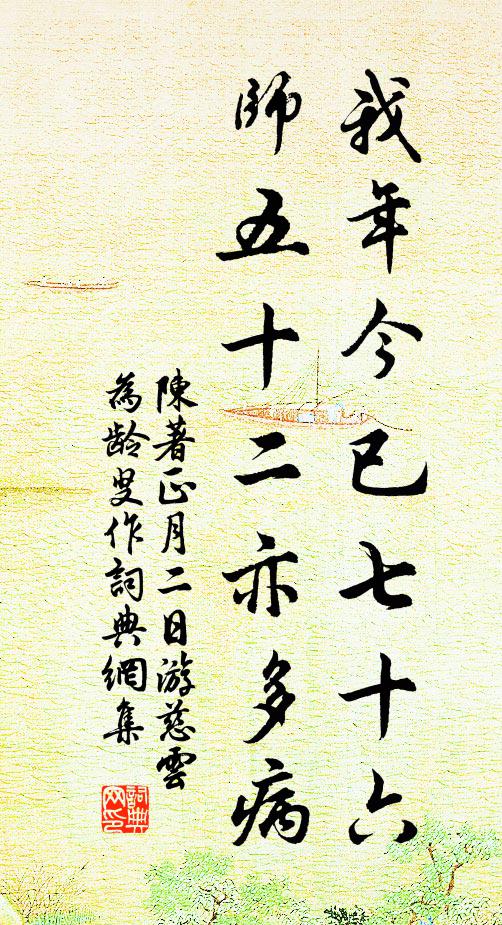 我年今已七十六
師五十二亦多病
陳著正月二日游慈雲
為龄叟作詞典網集
詞典网印